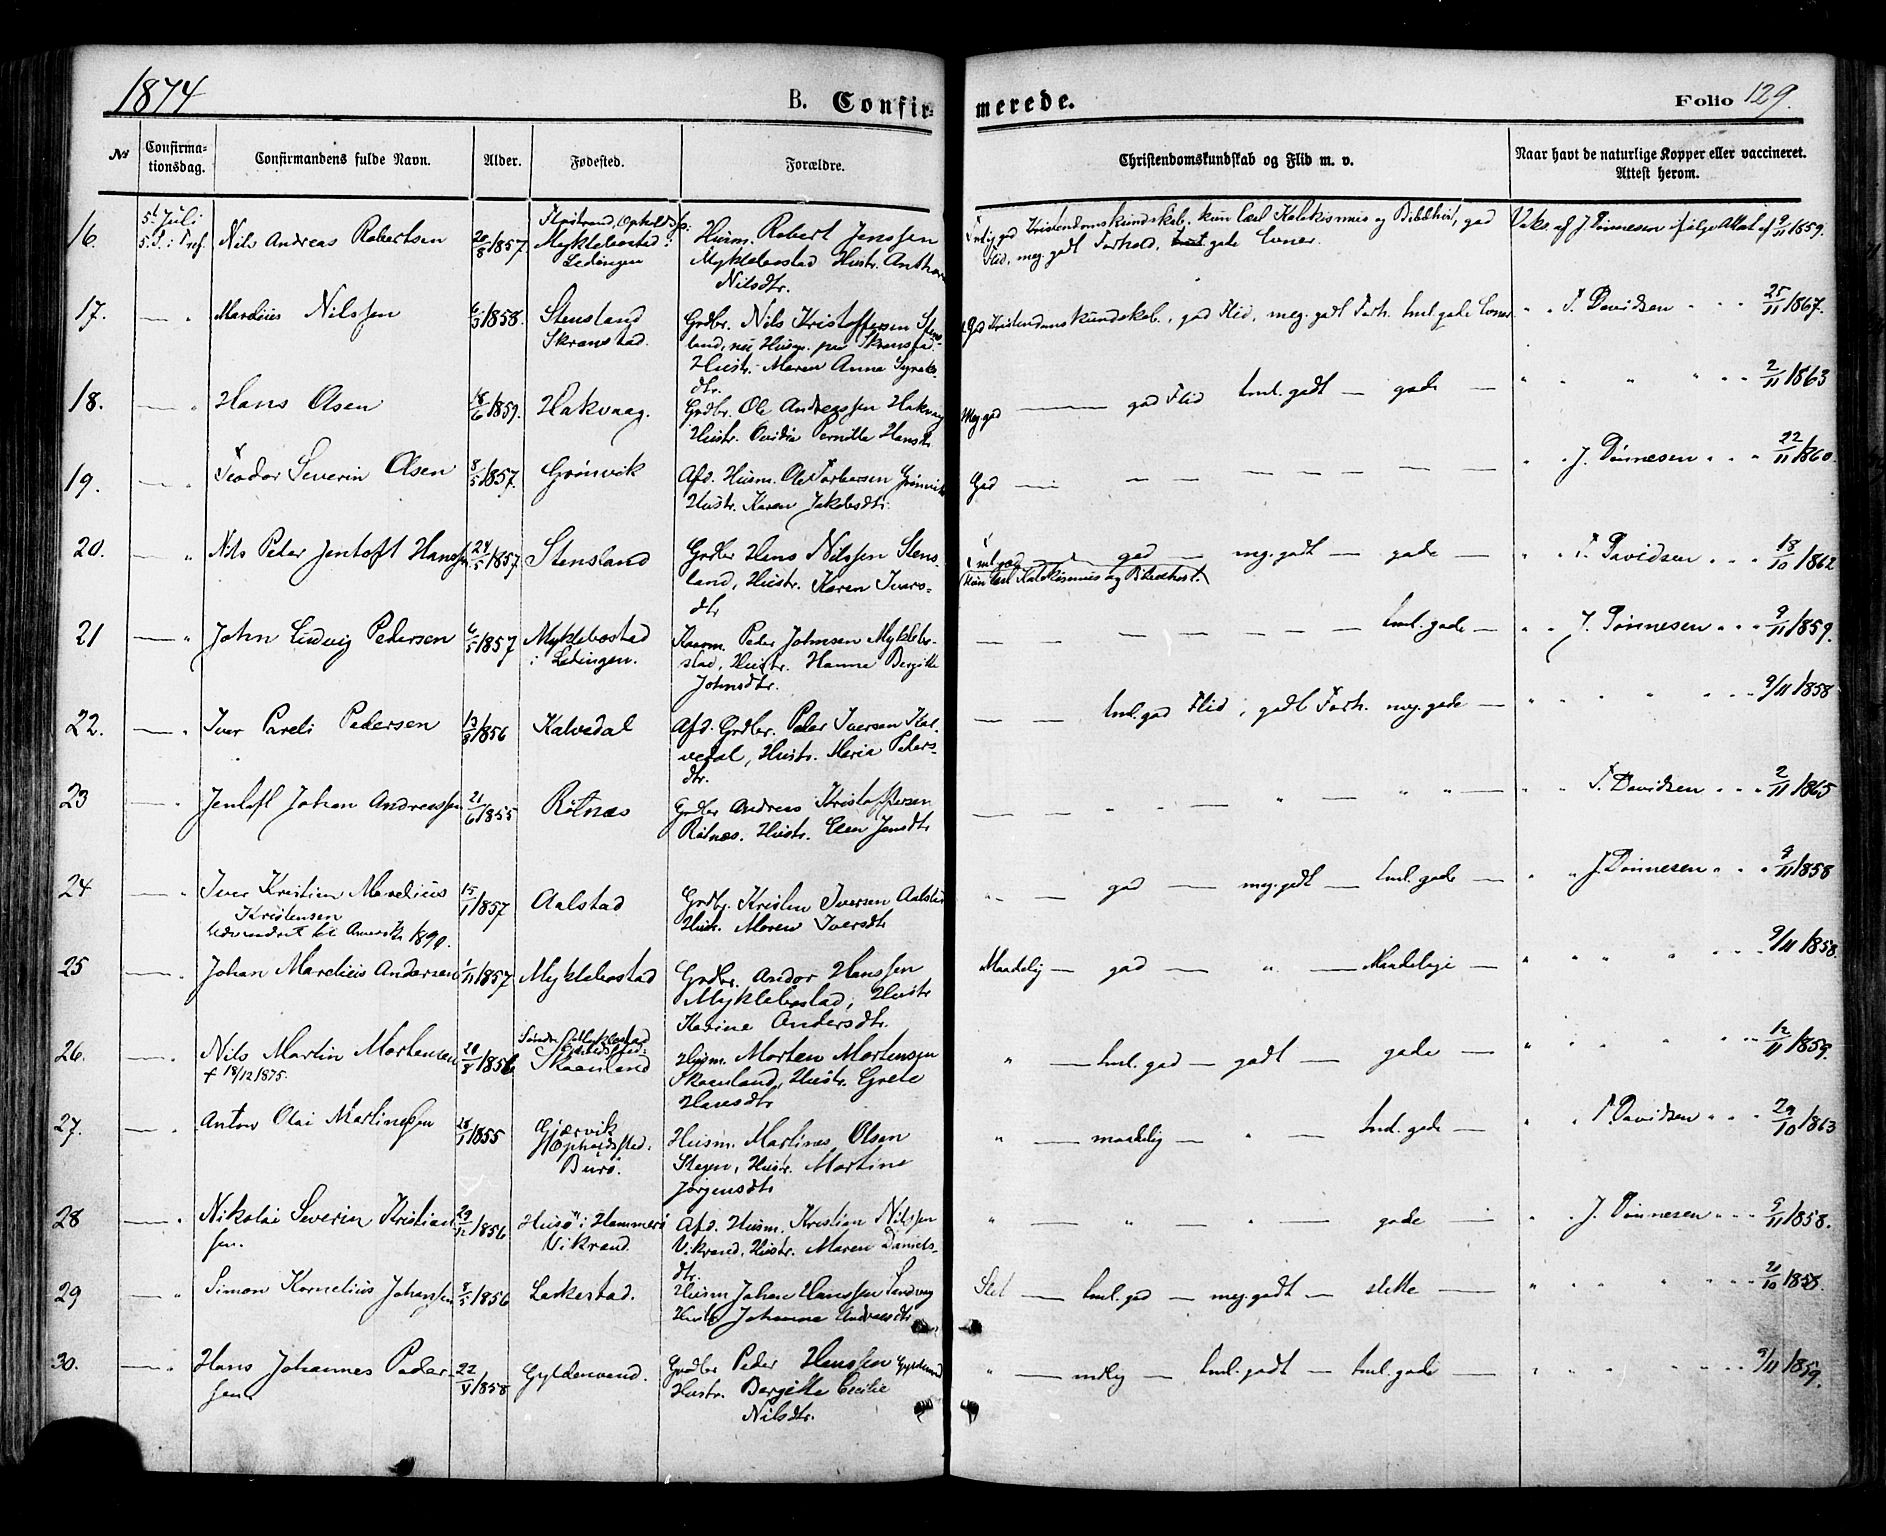 1874 B. Confirmerede. Folio 129.
No Confirmationsdag. Confirmandens fulde Navn. Alder. Fødested. Forældre. Christendomskundskab og Flid m. v. Naar havt de naturlige Kopper eller vaccineret. Attest herom.
16. 5t Juli Nils Andreas Robertsen 20/8 1857. Myklebostad i Lødingen Husm. Robert Jenssen
Myklebostad Hustr. Nilsdtr.
god Kristendomskundskab, kun læst Katekismus og Bibelhist, god
Flid, meg. godt Forhold, gode Evner.
Vaks. af J. Tønnesen ifølge Attest af 9/11 1859.
17. — " Marelius Nilssen 6/3 1858. Stensland
Skranstad.
Grdbr. Nils Kristoffersen Stensland, nu Husm. paa Skranstad.
Hustr. Maren Anna
dtr.
God Kristendomskundskab, god Flid, meg. godt Forh. tml. gode Evner " " T. Davidsen " " " 25/11 1867.
18. — " Hans Olsen 18/6 1859. Hakvaag. Grdbr. Ole Andreassen Hakvaag
Hustr. Pernille
Meg. god — god Flid tml. godt — gode — " " " " " 2/11 1863
19. — " Teodor Severin Olsen 8/5 1857. Grønvik Afd. Husm. Ole Torbersen Grønvik
Hustr. Karen Jakobsdtr.
God — — — — — — " " J. Tønnesen " " " 22/11 1860.
20. — " Nils Peter Jentoft Hanssen 24/5 1857 Stensland Grdbr Hans Nilssen Stensland, Hustr. Karen Iversdtr
god — meg. godt — gode — " " T. Davidsen " " 18/10 1862
(kun læst Katekismus og Bibelhist.)
21 — " John Ludvig Pedersen 6/5 1857 Myklebostad
i Lødingen.
Peder Johnsen Myklebostad, Hustr. Hanna Bergitte
Johnsdtr.
— — — — — — — tml. gode — " " J. Tønnesen " " " 9/11 1859.
22. — " Iver Pareli Pedersen 13/8 1856 Kalvedal Afd. Grdbr. Peder Iversen Kalvedal, Hustr. Maria Pedersdtr.
— — tml. god Flid, godt Forh. meg. gode — " " " " " " 9/11 1858
23 — " Jentoft Johan Andreassen 21/6 1855 Rötnæs Grdbr Andreas Kristoffersen
Rötnæs. Hustr. Elen Jensdtr
— — " — " — " " — " " T. Davidsen " " " 2/11 1865
24 — " Iver Kristian Marelius
Kristensen
Udvandret til Amerika 1890.
15/1 1857 Aalstad Grdbr. Kristen Iversen Aalstad
Hustr. Maren Iversdtr
" — god — meg. godt — tml. gode — " " J. Tønnesen " " " 9/11 1858
25 — " Johan Marelius Andersen 1/11 1857 Myklebostad Grdbr. Andor Hanssen
Myklebostad, Hustr
Karine Andersdtr.
Maadelig — god — " — Maadelige — " " " " " " 9/11 1858.
26. — " Nils Martin Mortensen
† 18/12 1875.
20/8 1856
Skaanland
Husm. Morten Mortensen
Skaanland, Hustr. Grete
Hansdtr
" — tml. god — godt — gode — " " " " " " 12/11 1859.
27. — " Anton Olai Martinessen 28/1 1855 Gjærvik
Opholdssted.
Burö.
Husm. Martines Olsen
Hustr. Martine
Jørgensdtr
" — maadelig — " — tml. gode — " T. Davidsen " " " 29/10 1863
28 — " Nikolai Severin Kristiansen.
29/12 1856 Husö i Hammerö
Vikrand.
Afd. Husm. Kristian Nilssen
Vikrand, Hustr. Maren Danielsdtr.
" — " — " — gode — " " J. Tønnesen " " " 9/11 1858.
29 — " Simon Kornelius Johanssen 8/5 1856 Laskestad. Husm Johan Hanssen Sandvaag
Hustr Johanna Andreasdtr
Slet — tml. god — meg. godt — slette — " " " " " " 21/10 1858.
30. — " Hans Johannes Pedersen
22/5 1858 Gyldenvand. Grdbr Peder Hanssen Gyldenvand
Hustr. Bergitte Cecilie
Nilsdtr.
" — — tml. godt — tml. gode — " " " " " " 9/11 1859.